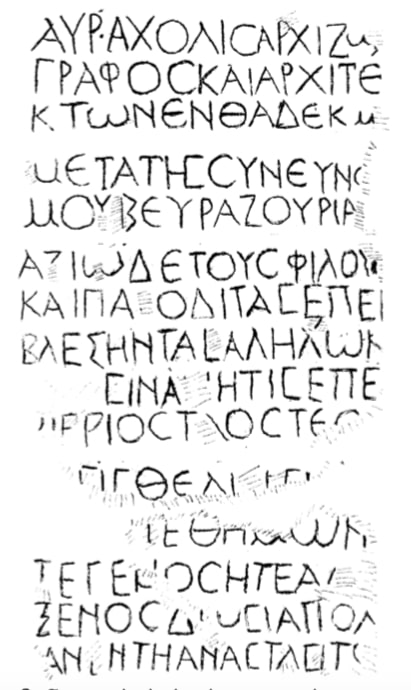 ΑΥΡ·ΑΧΟΛΙCΑΡΧΙΖω
ΓΡΑΦΟCΚΑΙΑΡΧΙΤΕ
ΚΤωΝΕΝΘΑΔΕΚ
ΜΕΤΑΤΗCCΥΝΕΥΝΟ
ΜΟΥΒΕΥΡΑΖΟΥΡΙΑ
ΑΞΙωΔΕΤΟΥCΦΙΛΟΥ
ΚΑΙΠΑ ΟΔΙΤΑCΕΠΕΙ
ΒΛΕΣΗΝΤΑCΑΛΗΛωΝ
CΙΝΑ ΗΤΙCΕΠΕ
ΡΡΙΟCΤ ΟCΤΕ
ΙΓΘΕΛΙ
ΕΘΗ ωΝ
ΤΕΓΕΝΟCΗΤΕΑ
ΞΕΝΟCΔ CΙΑΠΟΛ
ΑΝ ΝΤΗΑΝΑCΤΑCΙΤ